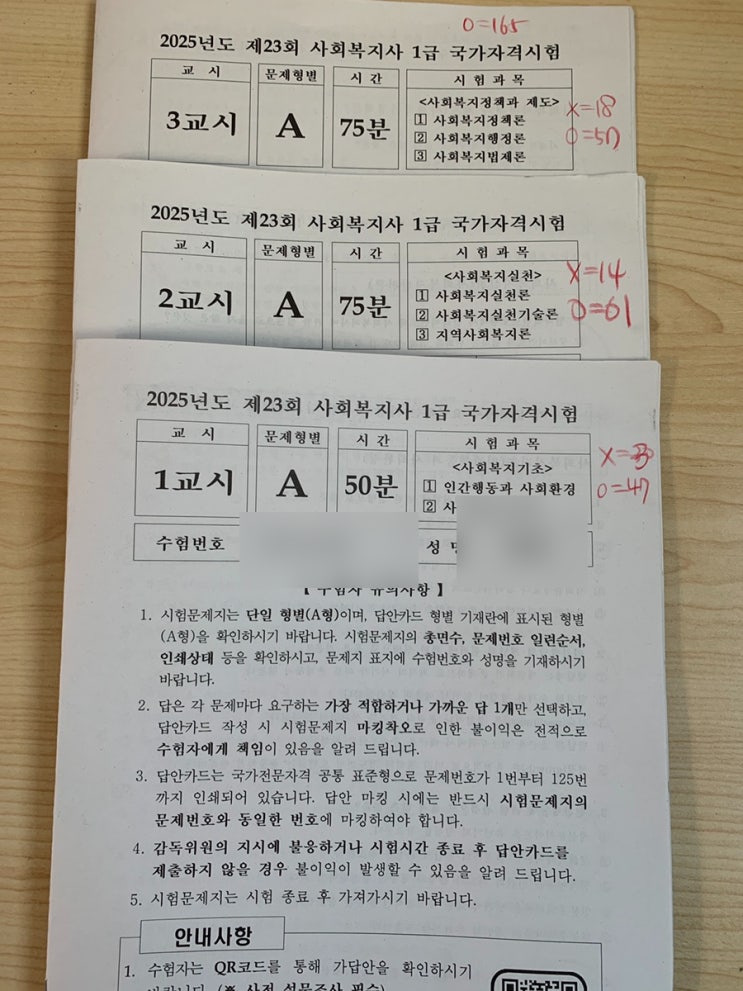 O=165
2025년도 제23회 사회복지사 1급 국가자격시험
교 시 문제형별 시 간 시 험 과 목
3교시 A 75분 <사회복지정책과 제도>
1 사회복지정책론
2 사회복지행정론
3 사회복지법제론
X=18
O=57
2025년도 제23회 사회복지사 1급 국가자격시험
교 시 문제형별 시 간 시 험 과 목
2교시 A 75분 <사회복지실천>
1 사회복지실천론
2 사회복지실천기술론
3 지역사회복지론
X=14
O=61
2025년도 제23회 사회복지사 1급 국가자격시험
교 시 문제형별 시 간 시 험 과 목
1교시 A 50분 <사회복지기초>
1 인간행동과 사회환경
2 사
X=3
O=47
수험번호 성 명
【 수험자 유의사항 】
1. 시험문제지는 단일 형별(A형)이며, 답안카드 형별 기재란에 표시된 형별
(A형)을 확인하시기 바랍니다. 시험문제지의 총면수, 문제번호 일련순서,
인쇄상태 등을 확인하시고, 문제지 표지에 수험번호와 성명을 기재하시기
바랍니다.
2. 답은 각 문제마다 요구하는 가장 적합하거나 가까운 답 1개만 선택하고,
답안카드 작성 시 시험문제지 마킹착오로 인한 불이익은 전적으로
수험자에게 책임이 있음을 알려 드립니다.
3. 답안카드는 국가전문자격 공통 표준형으로 문제번호가 1번부터 125번
까지 인쇄되어 있습니다. 답안 마킹 시에는 반드시 시험문제지의
문제번호와 동일한 번호에 마킹하여야 합니다.
4. 감독위원의 지시에 불응하거나 시험시간 종료 후 답안카드를
제출하지 않을 경우 불이익이 발생할 수 있음을 알려 드립니다.
5. 시험문제지는 시험 종료 후 가져가시기 바랍니다.
안내사항
1. 수험자는 QR코드를 통해 가답안을 확인하시기
바랍니다. (※ 사전 설문조사 필수)